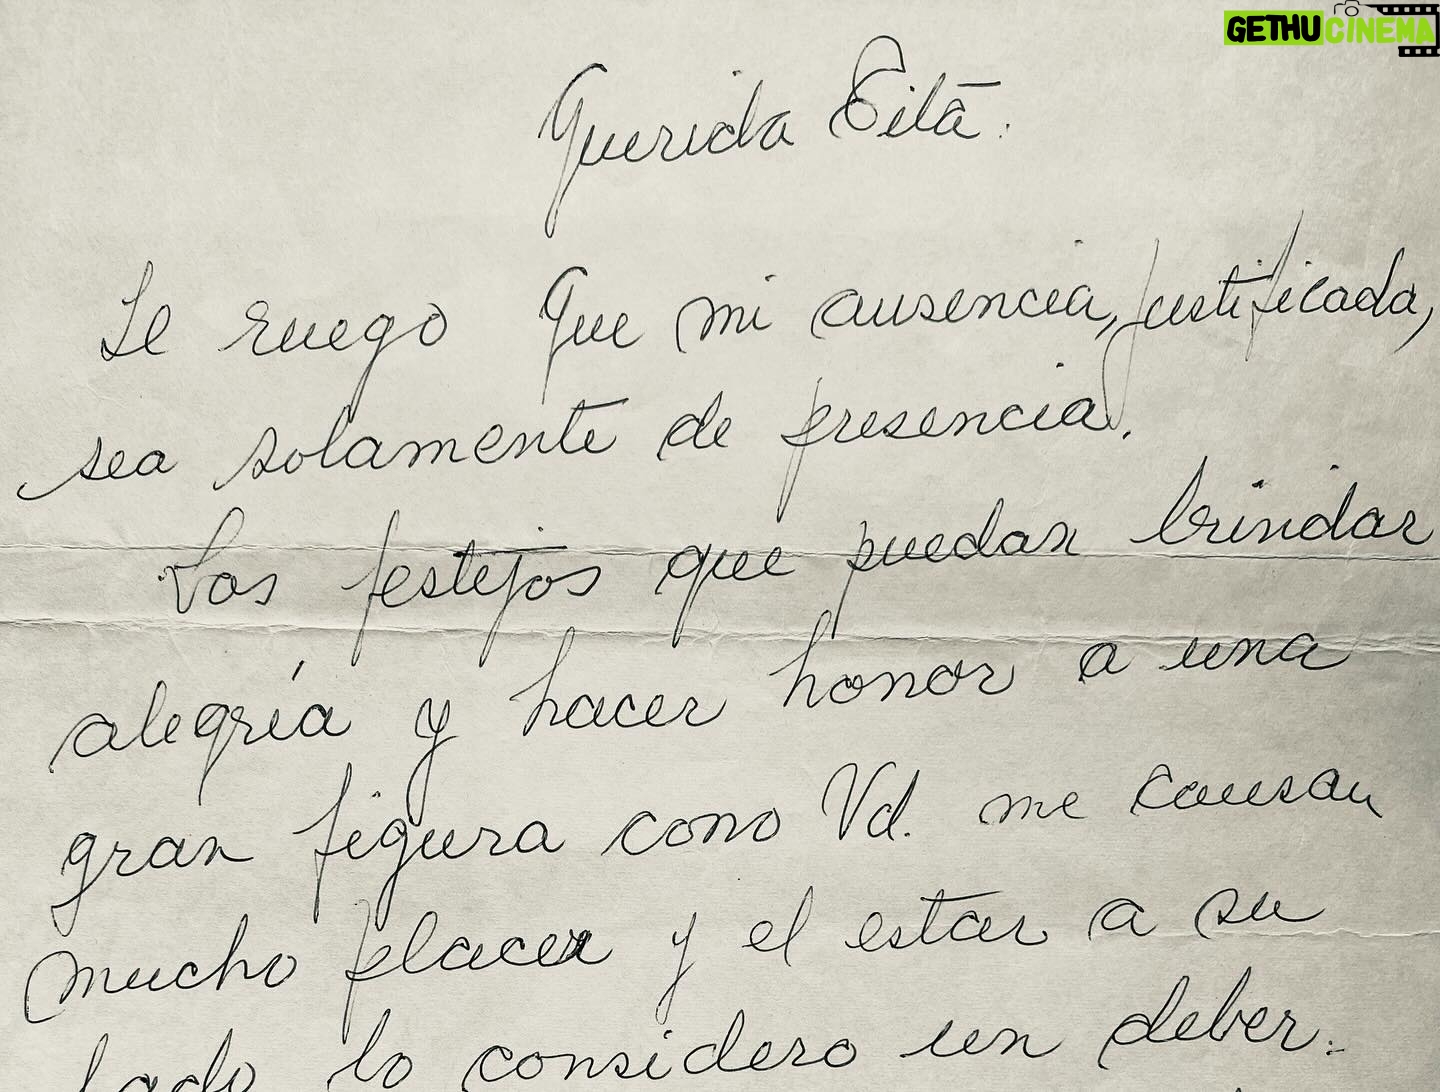 GETHUCINEMA
Querida Titã:
Le ruego que mi ausencia, justificada,
sea solamente de presencia.
Los festejos que puedan brindar
alegría y hacer honor a una
gran figura como Vd. me causan
mucho placer y el estar a su
lado lo considero un deber.